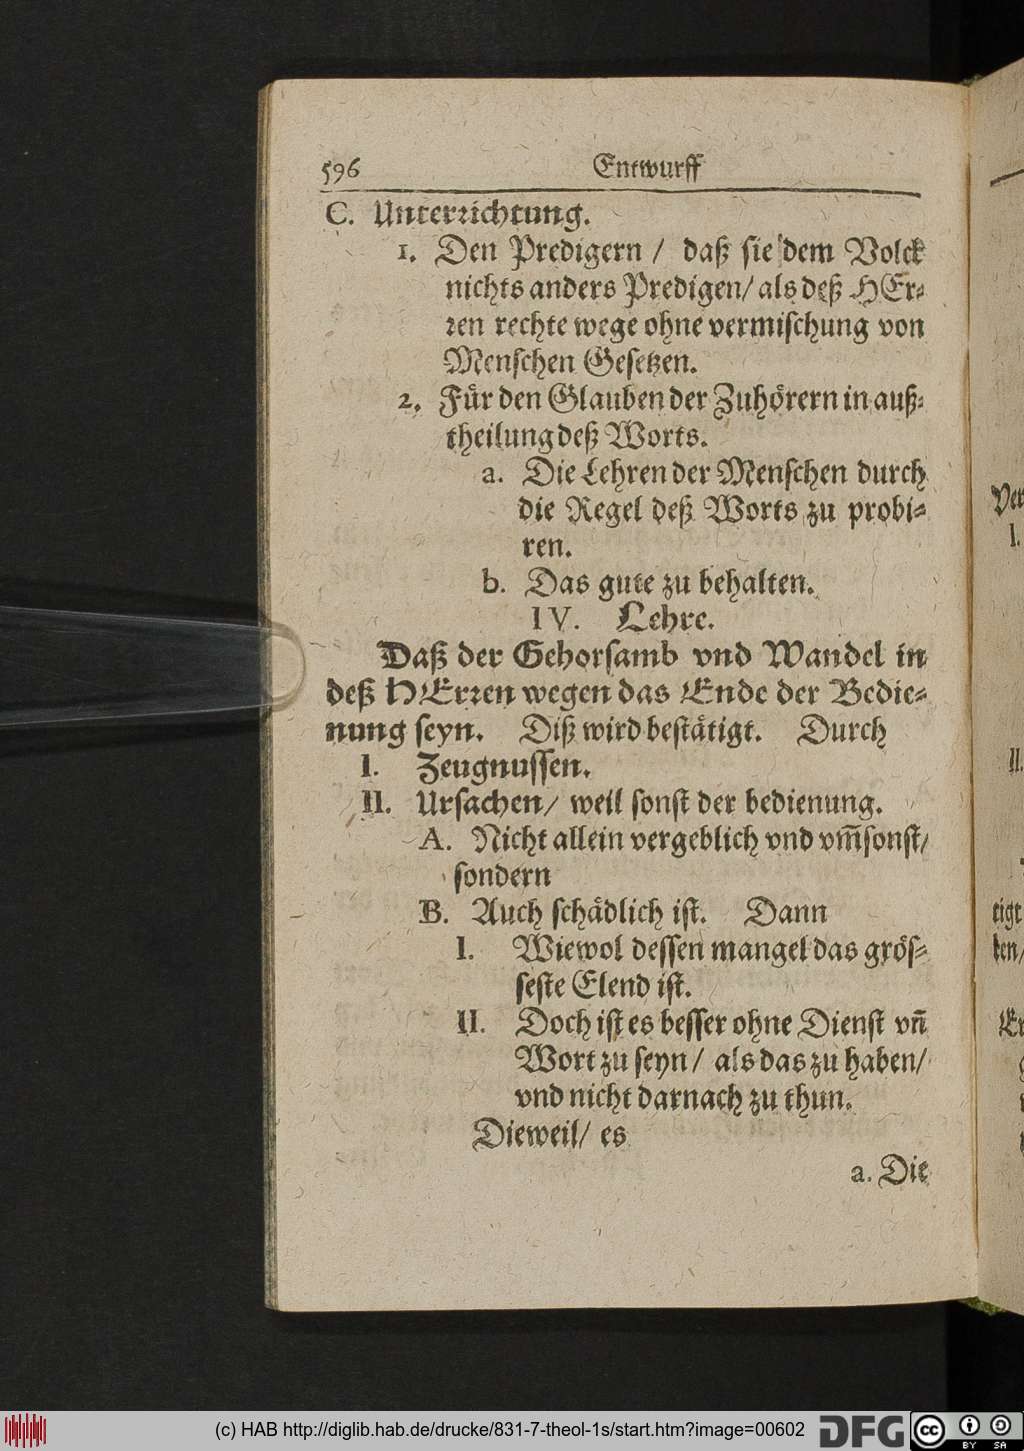 596 Entwurff
C. Unterrichtung.
1. Den Predigern / daß sie dem Volck
nichts anders Predigen/ als deß HEr⸗
ren rechte wege ohne vermischung von
Menschen Gesetzen.
2. Für den Glauben der Zuhörern in auß⸗
theilung deß Worts.
a. Die Lehren der Menschen durch
die Regel deß Worts zu probi⸗
ren.
b. Das gute zu behalten.
IV. Lehre.
Daß der Gehorsamb vnd Wandel in
deß HErren wegen das Ende der Bedie⸗
nung seyn. Diß wird bestätigt. Durch
I. Zeugnussen.
II. Ursachen/ weil sonst der bedienung.
A. Nicht allein vergeblich vnd vm̃sonst/
sondern
B. Auch schädlich ist. Dann
I. Wiewol dessen mangel das grös⸗
seste Elend ist.
II. Doch ist es besser ohne Dienst vñ
Wort zu seyn / als das zu haben/
vnd nicht darnach zu thun.
Dieweil/ es
a. Die
Ver
I.
II.
eigt
ken/
Er
(c) HAB http://diglib.hab.de/drucke/831-7-theol-1s/start.htm?image=00602
DFG
cc
BY SA